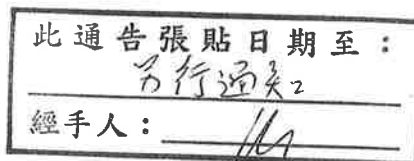 此通告張貼日期至：
另行通知
經手人：